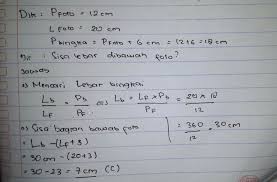 Dik : P foto = 12 cm
L foto = 20 cm
P bingkai = P foto + 6 cm = 12+6 = 18 cm
Dit : Sisa lebar dibawah foto?
Jawab
a) Mencari Lebar bingkai
Lb/LF = Pb/PF => Lb = LF x Pb/PF = 20 x 18/12
= 360/12 = 30 cm
b) Sisa bagian bawah foto
= Lb - (LF+3)
= 30 cm - (20+3)
= 30 - 23 = 7 cm (C)